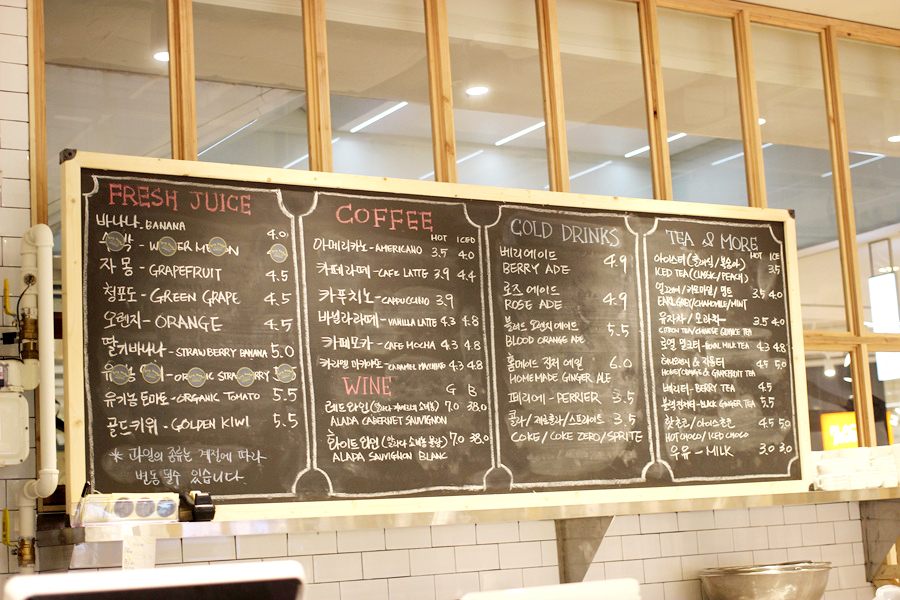 FRESH JUICE
바나나. BANANA 4.0
자몽 - GRAPEFRUIT 4.5
청포도 - GREEN GRAPE 4.5
오렌지 - ORANGE 4.5
딸기바나나 - STRAWBERRY BANANA 5.0
유기농 토마토 - ORGANIC TOMATO 5.5
골드키위 - GOLDEN KIWI 5.5
* 과일의 종류는 계절에 따라
변동 될수 있습니다.
COFFEE
HOT ICED
아메리카노 - AMERICANO 3.5 4.0
카페라떼 - CAFE LATTE 3.9 4.4
카푸치노 - CAPPUCCINO 3.9
바닐라라떼 - VANILLA LATTE 4.3 4.8
카페모카 - CAFE MOCHA 4.3 4.8
카라멜 마끼아또 - CARAMEL MACCHIATO 4.3 4.8
WINE G B
레드와인 7.0 38.0
ALADA CABERNET SAUVIGNON
화이트와인 7.0 38.0
ALADA SAUVIGNON BLANC
COLD DRINKS
베리에이드 4.9
BERRY ADE
로즈 에이드 4.9
ROSE ADE
블러드 오렌지에이드 5.5
BLOOD ORANGE ADE
홈메이드 진저 에일 6.0
HOMEMADE GINGER ALE
페리에 - PERRIER 3.5
콜라/제로콜라/스프라이트 3.5
COKE/COKE ZERO/SPRITE
TEA & MORE
HOT ICE
아이스티 (클래식/복숭아) 3.5
ICED TEA (CLASSIC/PEACH)
얼그레이/카모마일/민트 3.5 4.0
EARLGREY/CHAMOMILE/MINT
유자차/모과차 3.5 4.0
CITRON TEA/CHINESE QUINCE TEA
로얄 밀크티 - ROYAL MILK TEA 4.3 4.8
4.5 5.0
HONEY ORANGE & GRAPEFRUIT TEA
베리티 - BERRY TEA 4.5
블랙진저티 - BLACK GINGER TEA 5.5
핫초코/아이스초코 4.5 5.0
HOT CHOCO/ICED CHOCO
우유 - MILK 3.0 3.0